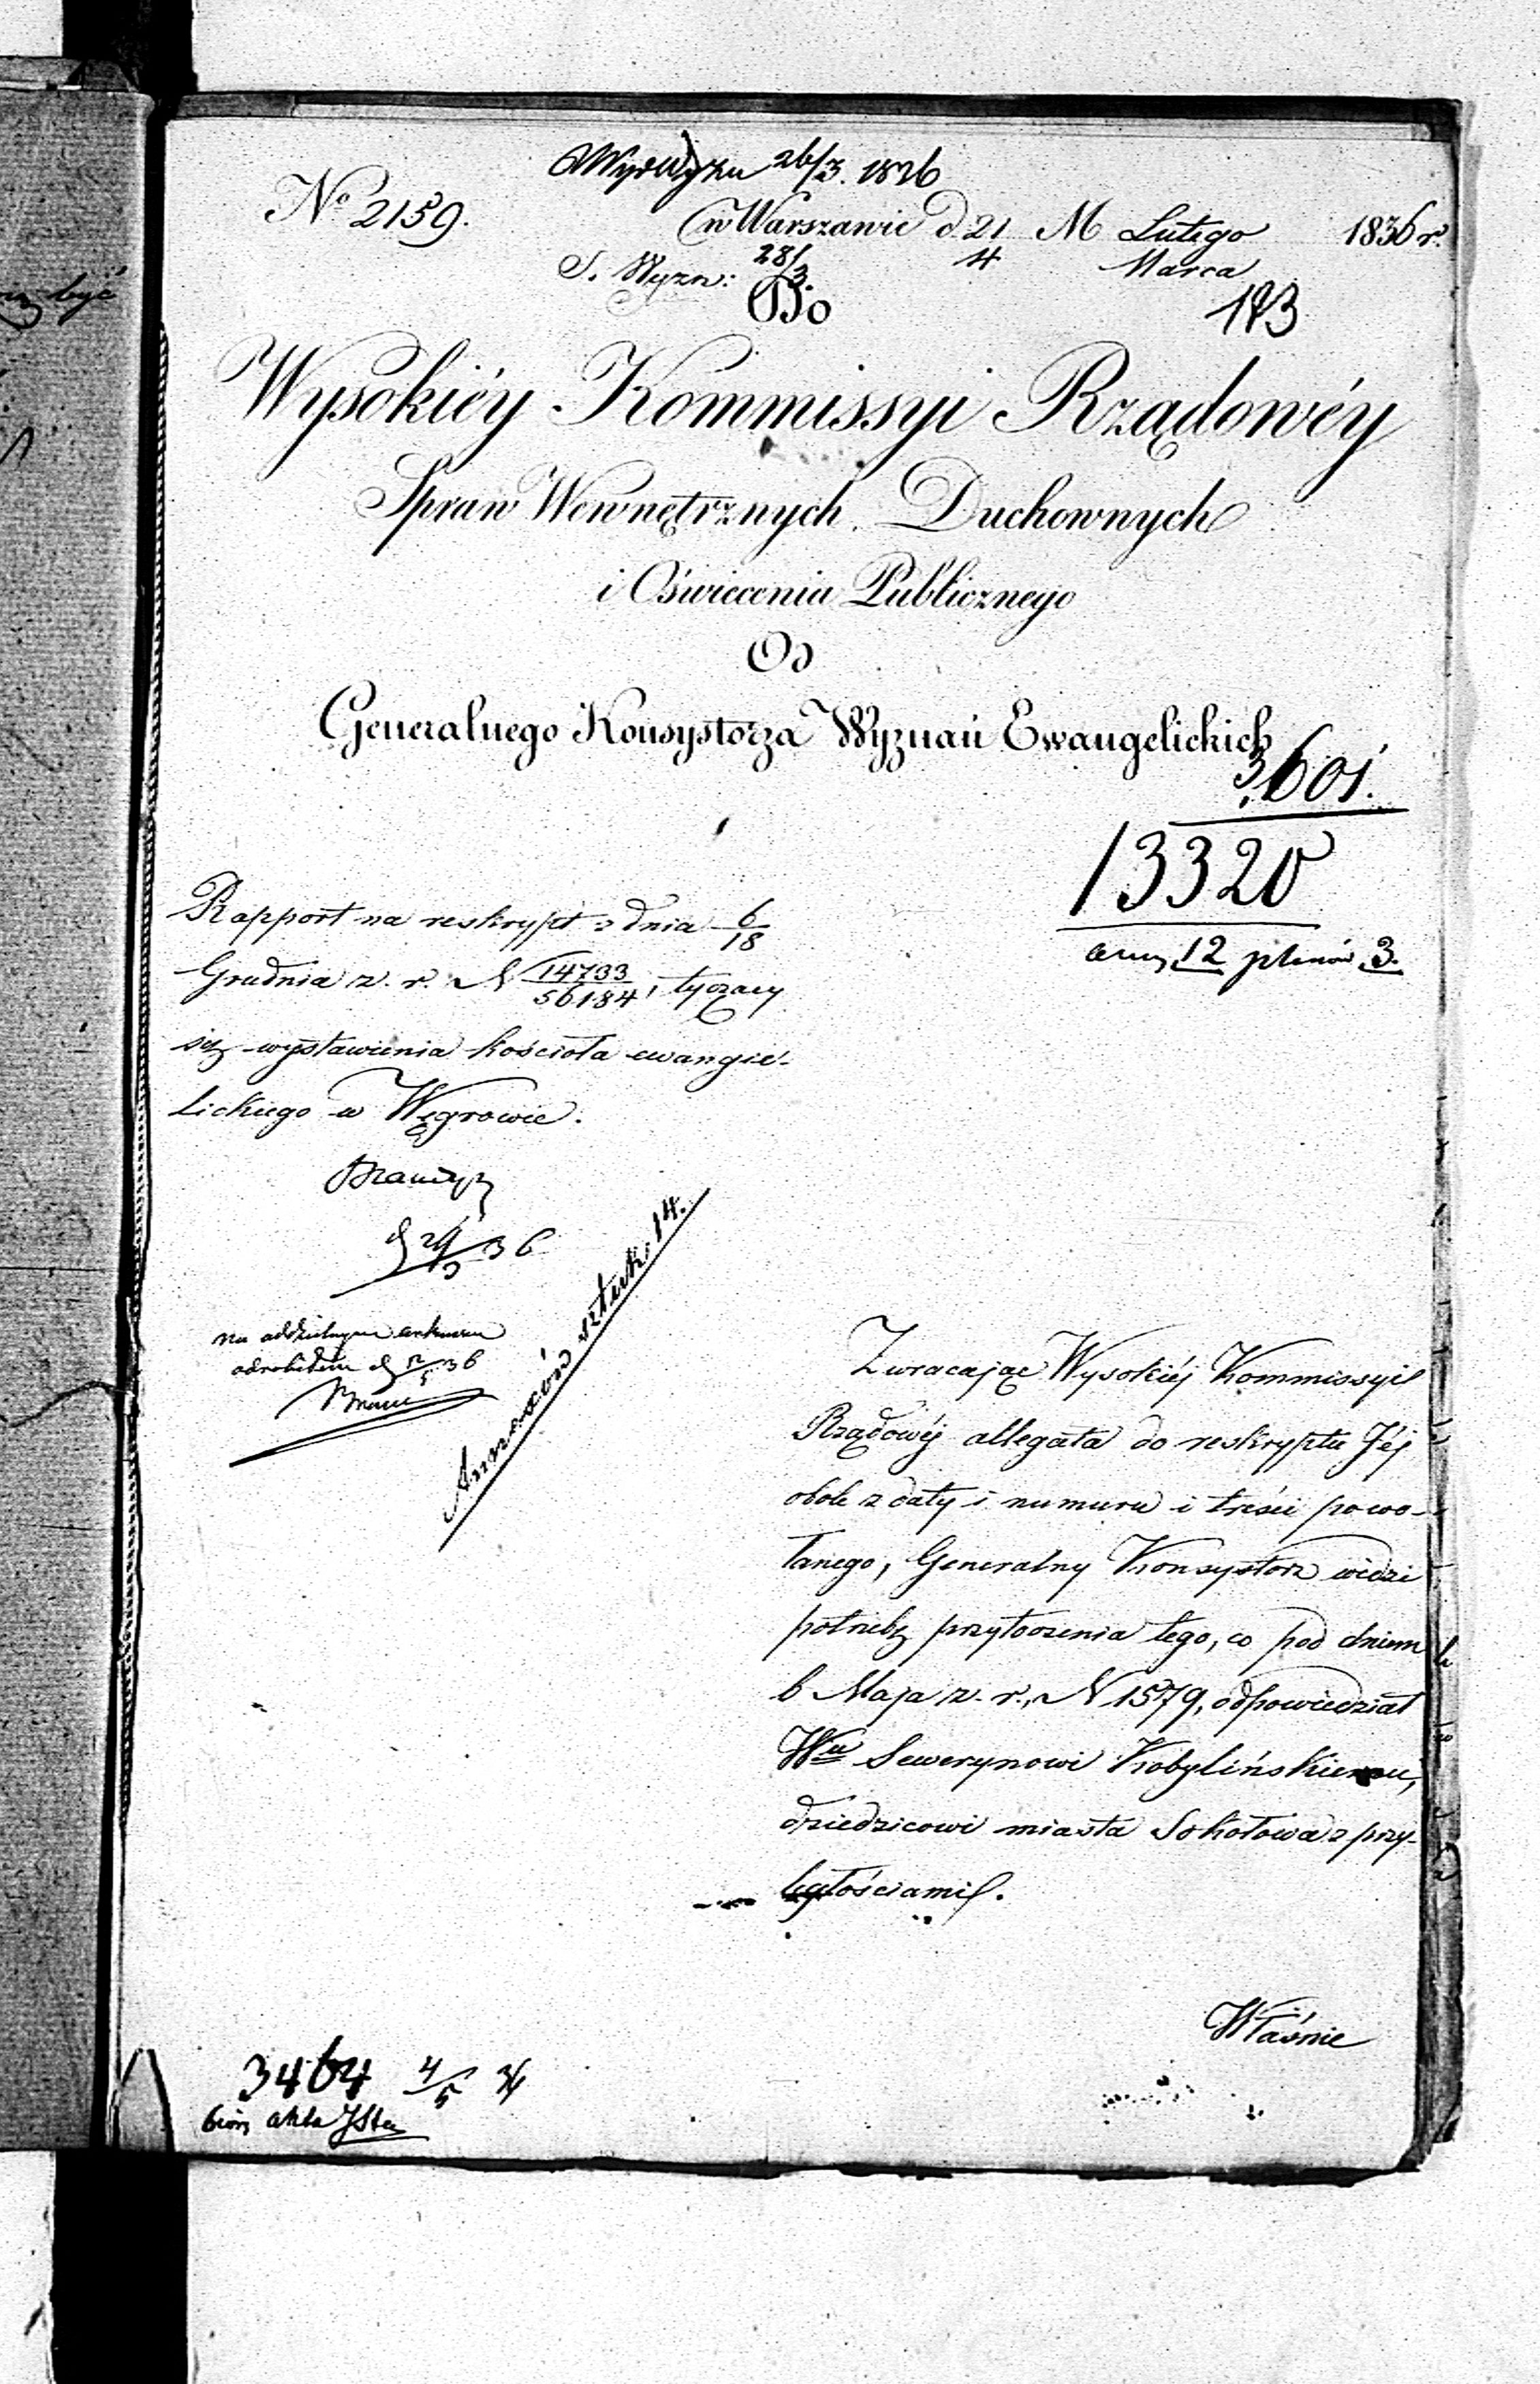 26/3. 1836
No 2159.
w Warszawie d 21 M Lutego 1836 r.
4 Marca
S. Wyzn: 28/3.
Do
183
Wysokiéy Kommissyi Rządowéy
Spraw Wewnętrznych Duchownych
i Oświecenia Publicznego
Od
Generalnego Konsystorza Wyznań Ewangelickich
3,601.
13320
12 planów 3.
Rapport na reskrypt z dnia 6/18
Grudnia z. r. N 14733/56184, tyczący
się wystawienia kościoła ewangie-
lickiego w Węgrowie.
d 29/3 36
na oddzielnym arkuszu
odrobiłem d 2/5 36
Annexów sztuk: 14.
Zwracając Wysokiéj Kommissyi
Rządowéj allegata do reskryptu Jéj
obok z daty i numeru i treści powo-
łanego, Generalny Konsystorz widzi
potrzebę przytoczenia tego, co pod dniem
6 Maja z. r., N 1579, odpowiedział
Wu Sewerynowi Kobylińskiemu,
dziedzicowi miasta Sokołowa z przy-
ległościami.
Właśnie
3464 4/5
akta
być